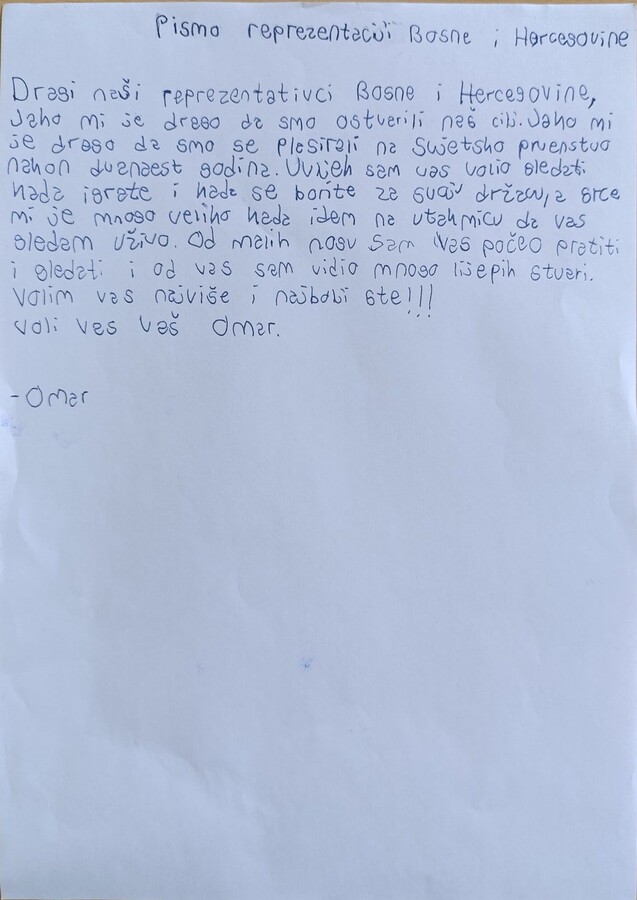 Pismo reprezentaciji Bosne i Hercegovine
Dragi naši reprezentativci Bosne i Hercegovine,
Jako mi je drago da smo ostvarili naš cilj. Jako mi
je drago da smo se plasirali na Svjetsko prvenstvo
nakon dvanaest godina. Uvijek sam vas volio gledati
kada igrate i kada se borite za svoju državu, a srce
mi je mnogo veliko kada idem na utakmicu da vas
gledam uživo. Od malih nogu sam vas počeo pratiti
i gledati i od vas sam vidio mnogo lijepih stvari.
Volim vas najviše i najbolji ste!!!
Voli vas vaš Omar.
-Omar